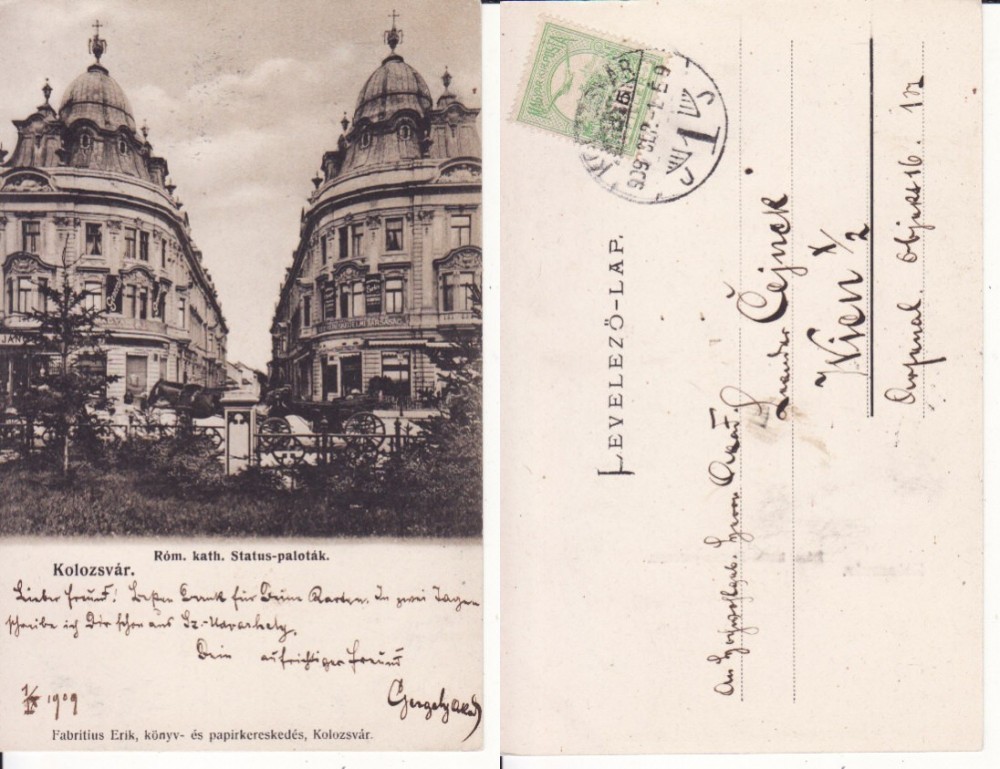 Róm. kath. Status-paloták.
Kolozsvár.
Lieber Freund! Besten Dank für Deine Karten. In zwei Tagen
schreibe ich Dir schon aus Sz-Vásárhely.
Dein aufrichtiger Freund
Gergely
1/IX 1909
Fabritius Erik, könyv- és papirkereskedés, Kolozsvár.
LEVELEZŐ-LAP.
An Hochwohlgeb. Herrn
Čejnek
Wien X/2
Arsenal. Objekt 16.
909 SEP.